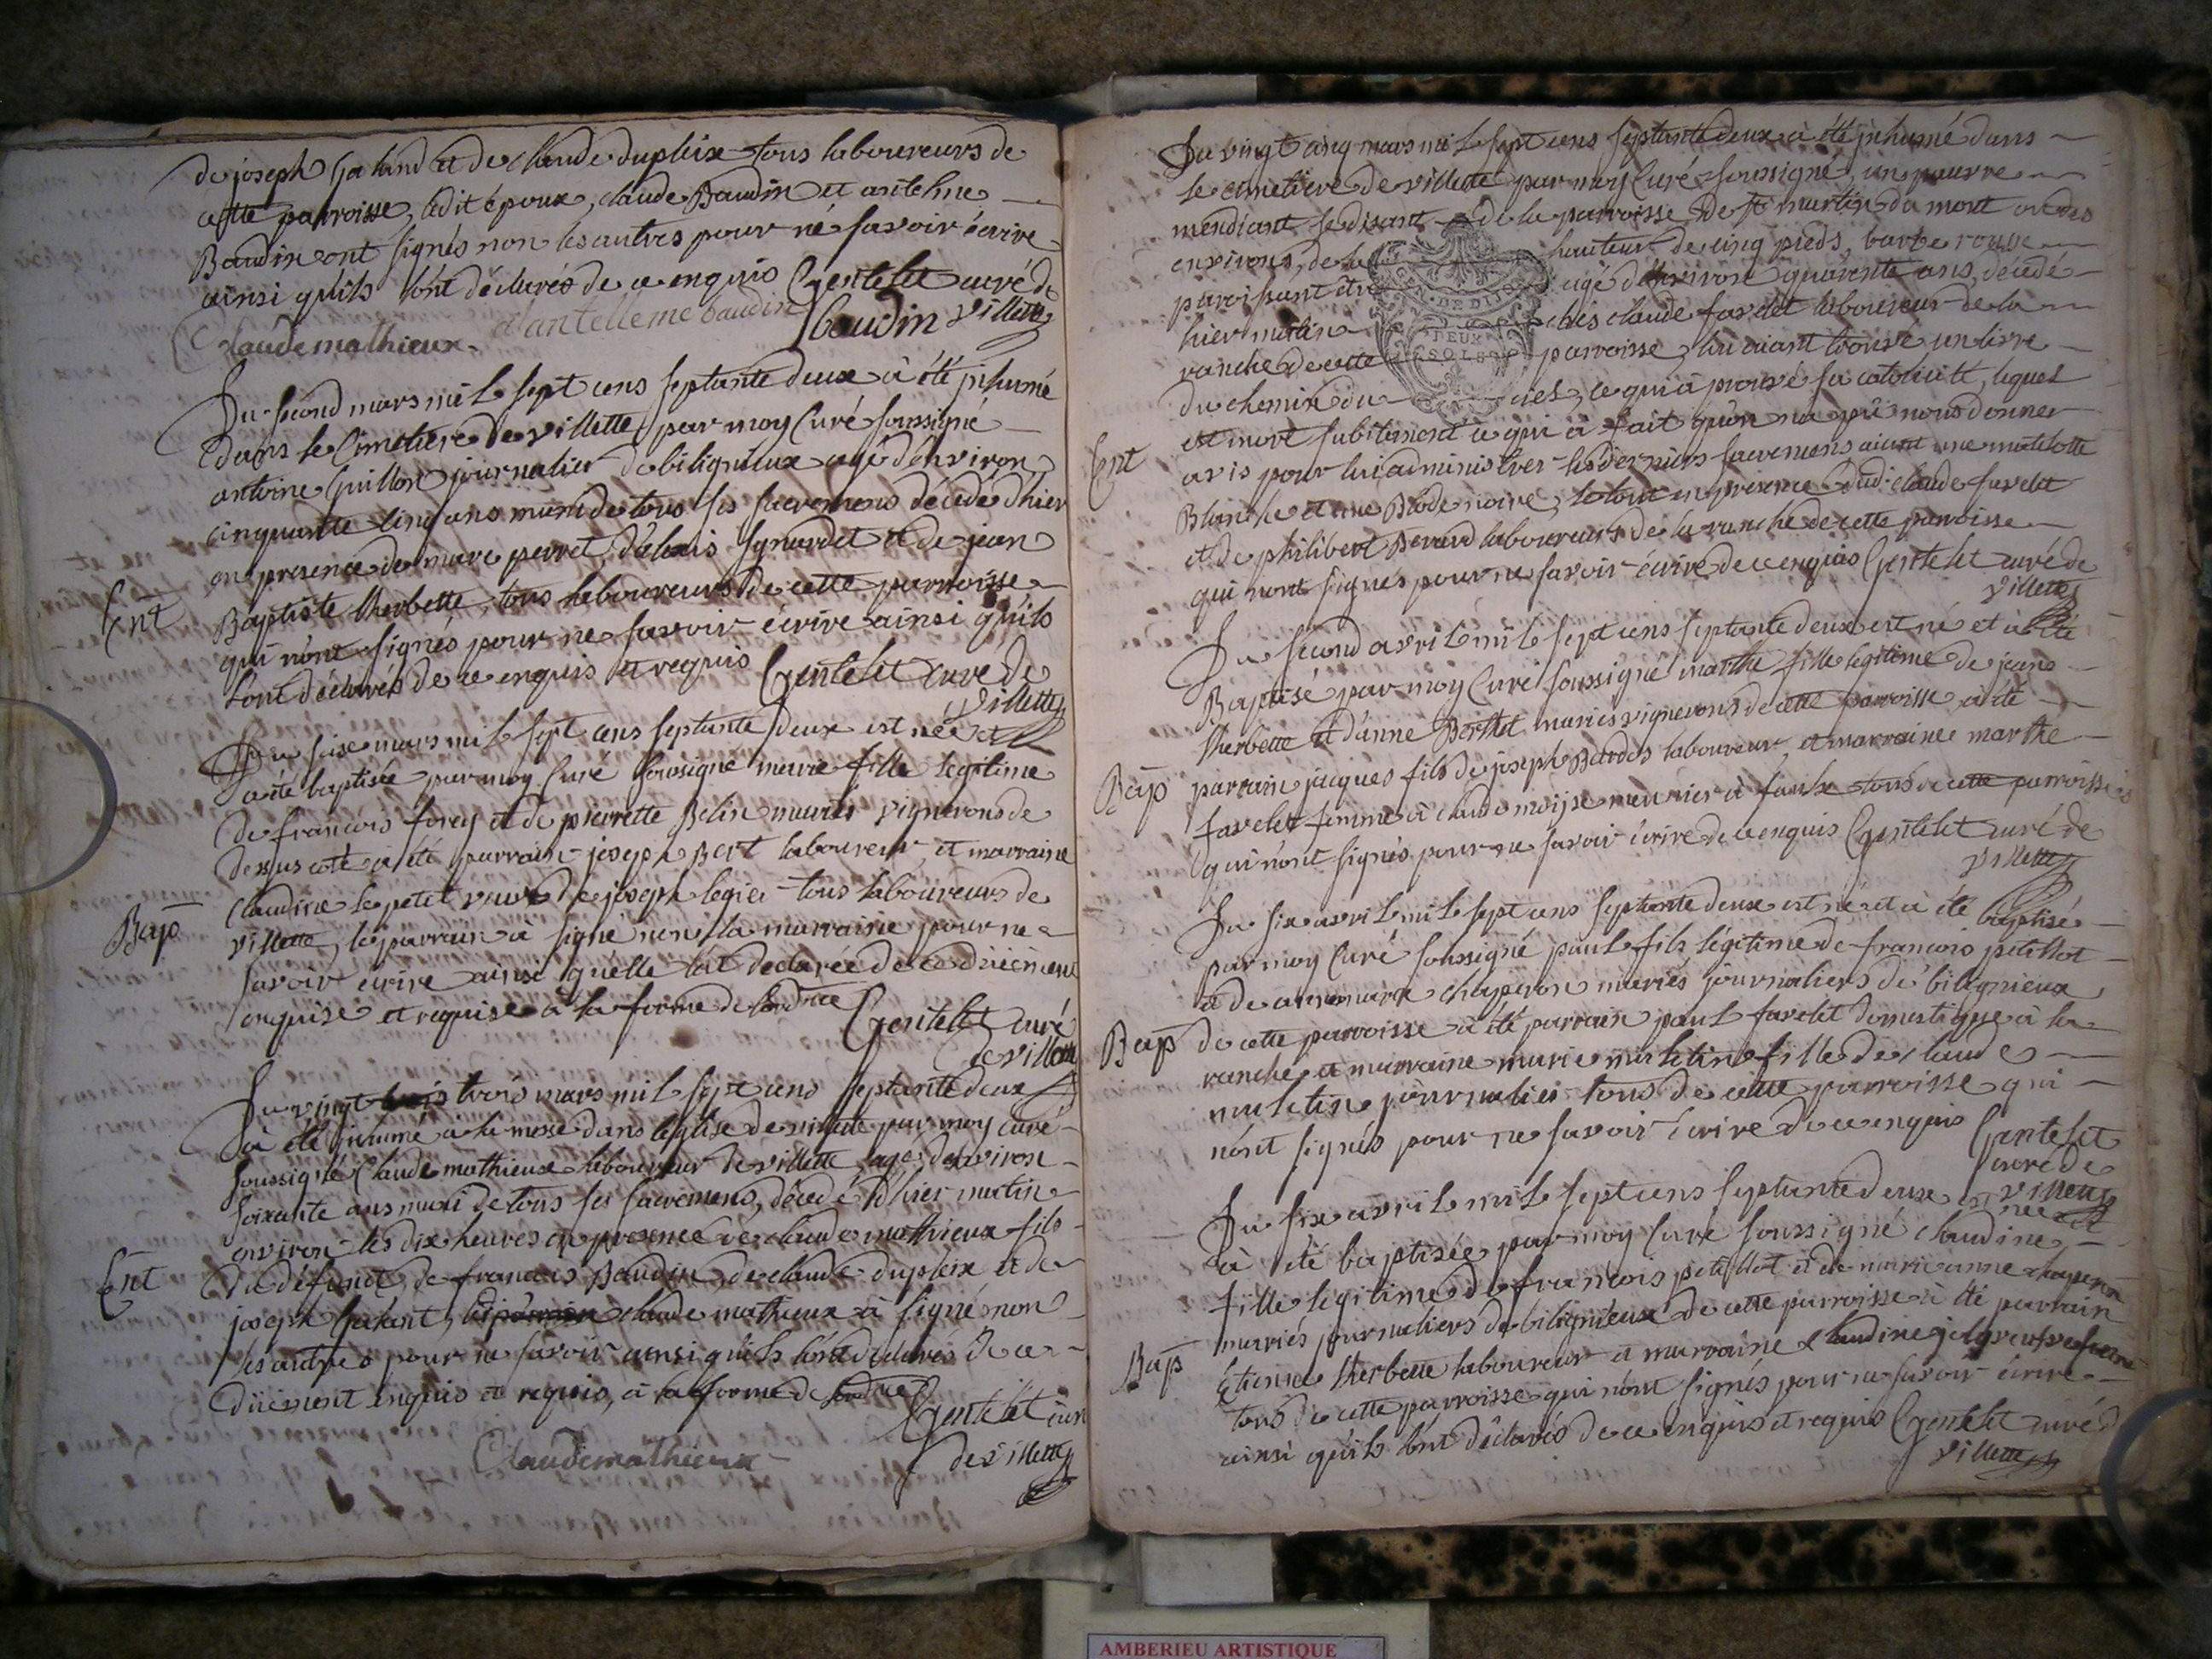 de joseph Galland et de Claude dupleix tous laboureurs de
cette parroisse, ledit époux, claude Baudin et antelme
Baudin ont signés non les autres pour né savoir écrire
ainsi quils l'ont déclarés de ce enquis Gentelet curé de
villette
Claude mathieux
antelleme baudin
C baudin
Du second mars mil sept cens septante deux à été inhumé
dans le Cimetiere de villette par moy Curé soussigné
antoine Guillon journalier de biligneux agé d'environ
cinquante cinq ans muni de tous ses sacremens décédé d'hier
en presence de marc perret, d'alexis et de jean
Baptiste therbette, tous laboureurs de cette parroisse
qui n'ont signés pour ne savoir écrire ainsi quils
l'ont déclarés de ce enquis et requis Gentelet curé de
villette
Ent
Du seise mars mil sept cens septante deux est née et
à été baptisée par moy Curé soussigné marie fille legitime
de francois forey et de pierrette Belin mariés vignerons de
dessus coté à été parrain joseph Bert laboureur et marraine
Claudine le petit veuve de joseph legier tous laboureurs de
villette, le parrain à signé non la marraine pour ne
savoir écrire ainsi qu'elle l'at declarée de ce düement
enquise et requise à la forme de l'ordce Gentelet Curé
de villette
Bap
Du vingt trois mars mil sept cens septante deux
à été inhumé à la messe dans leglise de villette par moy curé
soussigné Claude mathieux laboureur de villette, agé d'environ
soixante ans muni de tous ses sacremens, décedé d'hier matin
environ les dix heures en presence de claude mathieux fils
du défunct, de francois Baudin, de claude dupleix et de
joseph Galland, claude mathieux à signé non
les autres pour ne savoir ainsi quils l'ont declarés de ce
düement enquis et requis, à la forme de l'ordce
Gentelet curé
de villette
Ent
Claude mathieux
Du vingt cinq mars mil sept cens septante deux à été inhumé dans
le cimetiere de villette par moy Curé soussigné, un pauvre
mendiant se disant de la parroisse de st martin du mont ou des
environs, de la hauteur de cinq pieds, barbe rousse
paroissant être agé d'environ quarente ans, décedé
hier matin chés claude favelet laboureur de la
ranche de cette parroisse, lui aiant trouvé un livre
du chemin du ciel, ce qui à prouvé sa catolicité, lequel
est mort subitement ce qui à fait qu'on n'a pû nous donner
avis pour lui administrer les derniers sacremens aiant une matelotte
Blanche et une Bode noire, le tout en presence dud. claude favelet
et de philibert Berard laboureurs de la ranche de cette parroisse
qui n'ont signés pour ne savoir écrire de ce enquis Gentelet curé de
villette
Ent
GEN. DE DIJON
DEUX
SOLS
Du second avril mil sept cens septante deux est né et à été
Baptisé par moy Curé soussigné marthe fille legitime de jean
therbette et d'anne Berthet mariés vignerons de cette parroisse à été
parrain jaques fils de joseph Bardos laboureur et marraine marthe
favelet femme à claude moijse meunier à tous de cette parroisse
qui n'ont signés pour ne savoir écrire de ce enquis Gentelet curé de
villette
Bap
Du six avril mil sept cens septante deux est né et à été baptisé
par moy Curé soussigné paul fils légitime de francois petillot
et de annemarie chaperon mariés journaliers de bilignieux
de cette parroisse à été parrain paul favelet domestique à la
ranche et marraine marie muletin fille de claude
muletin journalier tous de cette parroisse qui
n'ont signés pour ne savoir écrire de ce enquis Gentelet
curé de
villette
Bap
Du six avril mil sept cens septante deux est née et
à été baptisée par moy Curé soussigné claudine
fille legitime de francois petillot et de marieanne chaperon
mariés journaliers de bilignieux de cette parroisse à été parrain
Etienne therbette laboureur et marraine Claudine
tous de cette parroisse qui n'ont signés pour ne savoir écrire
ainsi qu'ils l'ont déclarés de ce enquis et requis Gentelet curé d
villette
Bap
AMBERIEU ARTISTIQUE